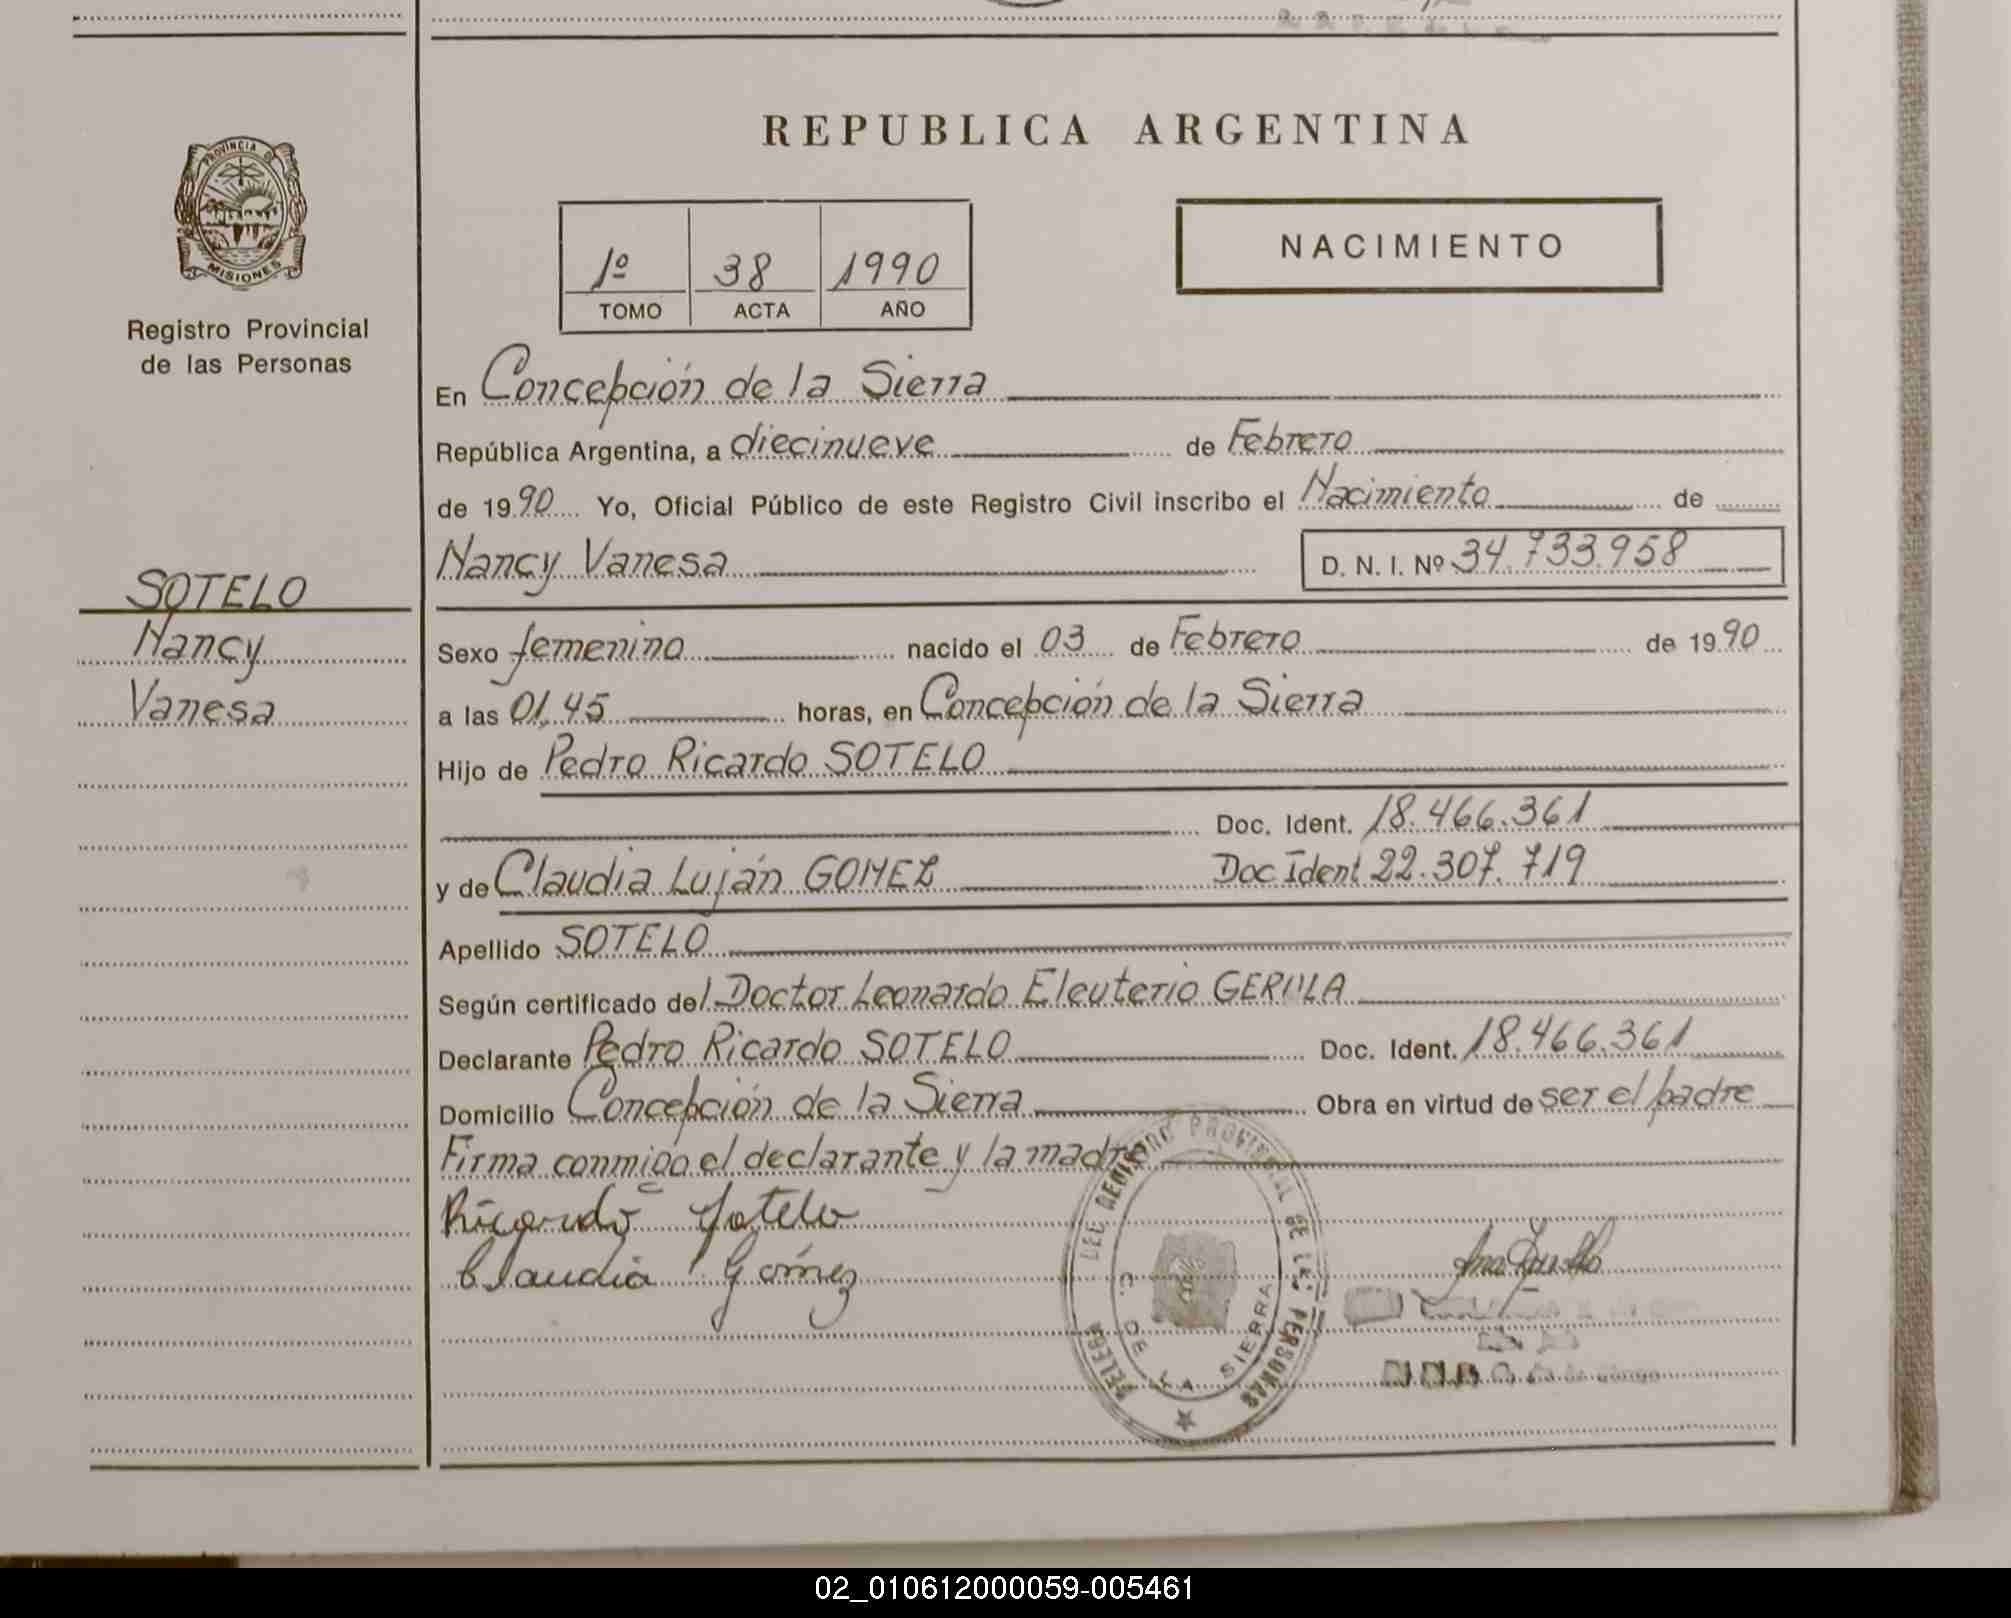 REPUBLICA ARGENTINA
PROVINCIA DE
MISIONES
Registro Provincial
de las Personas
NACIMIENTO
1º 38 1990
TOMO ACTA AÑO
SOTELO
Nancy
Vanesa
En Concepción de la Sierra
República Argentina, a diecinueve de Febrero
de 1990 Yo, Oficial Público de este Registro Civil inscribo el Nacimiento de
Nancy Vanesa D. N. I. Nº 34.733.958
Sexo femenino nacido el 03 de Febrero de 1990
a las 01,45 horas, en Concepción de la Sierra
Hijo de Pedro Ricardo SOTELO
Doc. Ident. 18.466.361
y de Claudia Luján GOMEZ Doc Ident 22.307.719
Apellido SOTELO
Según certificado del Doctor Leonardo Eleuterio
Declarante Pedro Ricardo SOTELO Doc. Ident. 18.466.361
Domicilio Concepción de la Sierra Obra en virtud de ser el padre
Firma conmigo el declarante y la madre
Ricardo Sotelo
Claudia Gómez
REGISTRO PROVINCIAL DE LAS PERSONAS
C. DE LA SIERRA
02_010612000059-005461